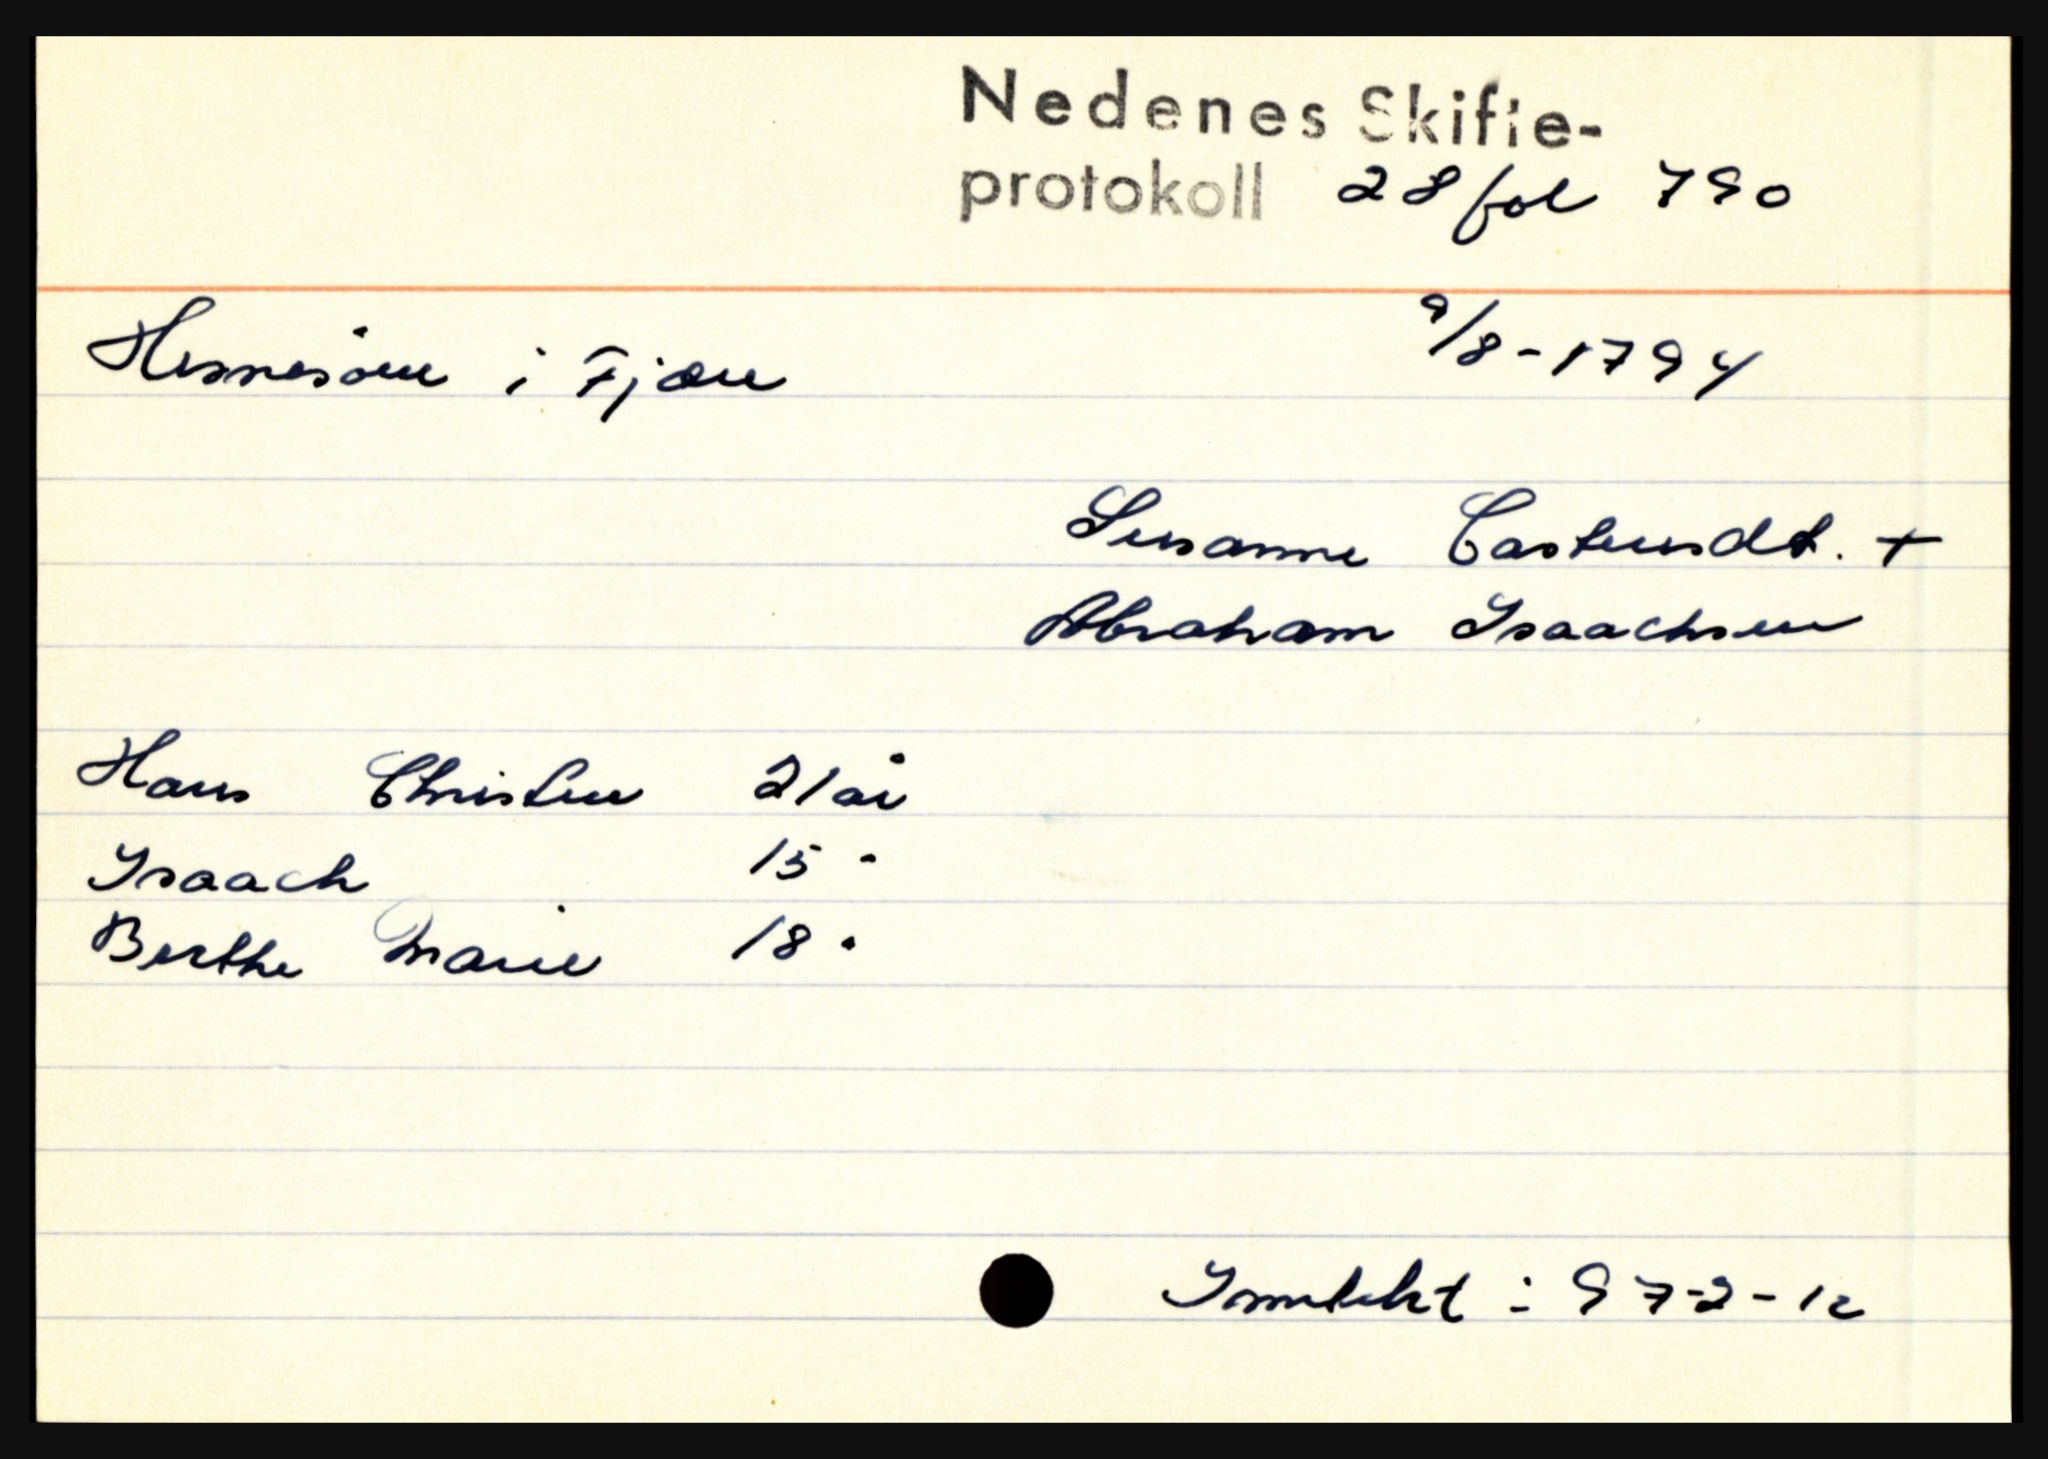 Nedenes Skifte-
protokoll 28 fol 790
9/8-1794
Hesnesøen i Fjære
Susanne Castensdt. +
Abraham Isaachsen
Hans Christen 21 år
Isaach 15 "
Berthe Marie 18 "
Inntekt : 97-2-12